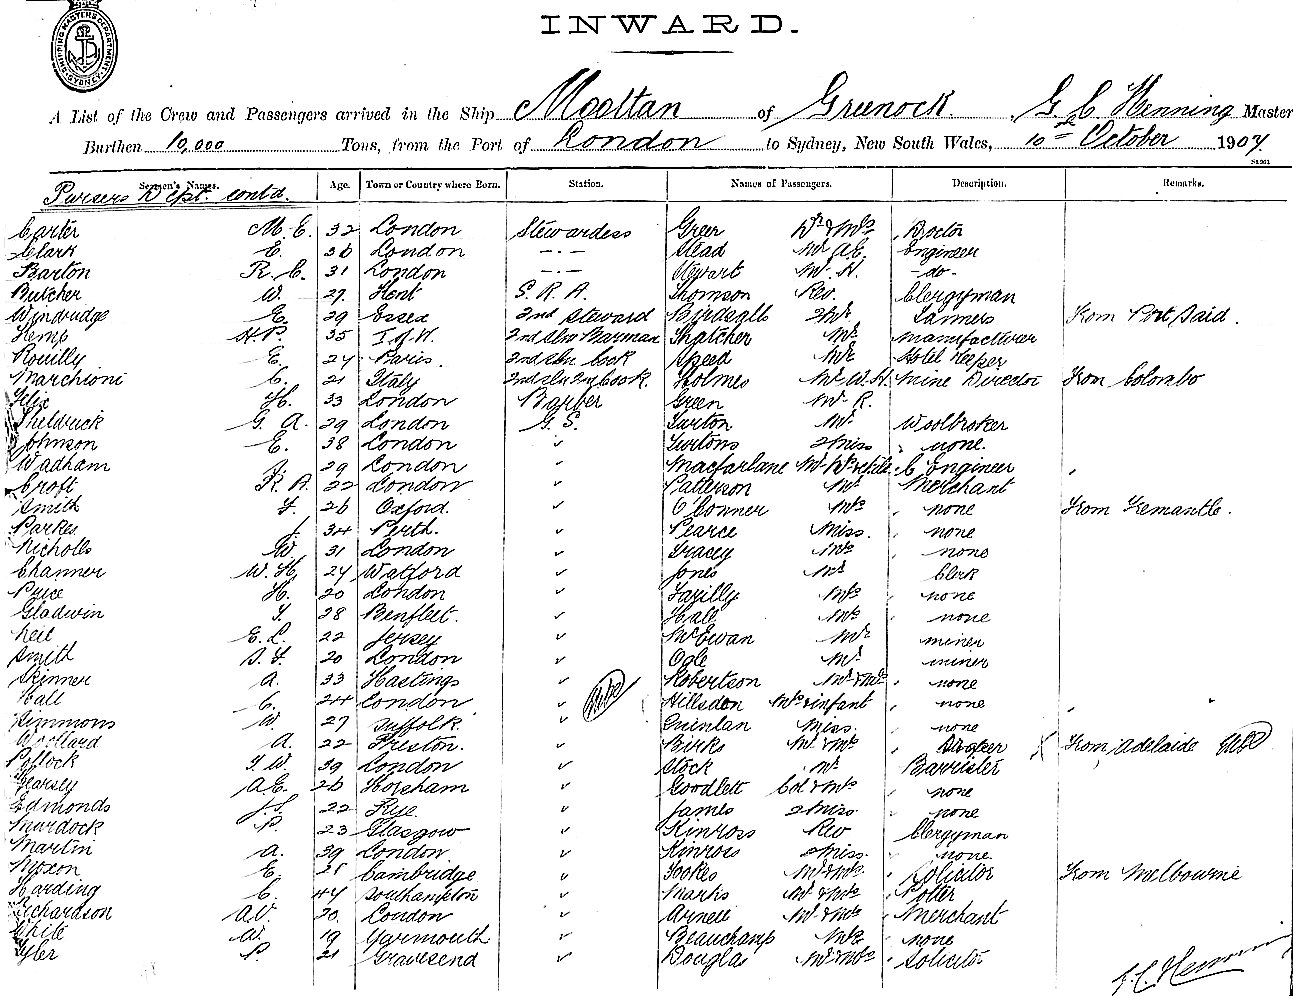 INWARD.
SHIPPING MASTER'S DEPARTMENT SYDNEY
A List of the Crew and Passengers arrived in the Ship Mooltan of Greenock. G. C. Henning Master
Burthen 10,000 Tons, from the Port of London to Sydney, New South Wales, 10th October 1907.
S1261
Seamen's Names. Age. Town or Country where Born. Station. Names of Passengers. Description. Remarks.
Pursers Dept. contd.
Carter M. E. 32 London Stewardess Greer Dr & Mrs Doctor
Clark E. 36 London -·- Stead Mr A.E. Engineer
Barton R. C. 31 London -·- Stewart Mr. H. -do-
Butcher W. 27 Kent S. R. A. Thomson Rev. Clergyman
Windridge E. 29 Essex 2nd Steward Birdsall 2 Mr Tanners From Port Said.
Kemp H.P. 35 I of W. 2nd Sln Barman Thatcher Mr. Manufacturer
Rouilly E. 24 Paris. 2nd Sln. Cook Speed Mr Hotel Keeper
Marchioni C. 21 Italy Cook. Holmes Mr W. H. Mine Director From Colombo
Felix H. 33 London Barber Green Mr. R.
Sheldrick G. A. 29 London G. S. Turton Mr. Woolbroker
Johnson E. 38 London " Turtons 2 Miss none.
Wadham J. 29 London " Macfarlane Mr C Engineer
Croft R. A. 22 London " Patterson Mr. Merchant
Smith F. 26 Oxford. " O'Conner Mrs none From Fremantle.
Parkes J. 34 Perth. " Pearce Miss. none
Nicholls W. 31 London " Tracey Mrs none
Channer W. H. 24 Watford " Jones Mr Clerk
Price H. 20 London " Farilly Mrs none
Gladwin T. 28 Benfleet. " Hall Mrs none
Neil E. L. 22 Jersey " McEwan Mr. miner
Smith S. F. 20 London " Ogle Mr. miner
Skinner A. 33 Hastings " Robertson Mr & Mrs none
Hall C. 24 London " Hillsdon Mrs & infant none
Simmons W. 27 Suffolk. " Quinlan Miss. none
Woollard A. 22 Preston. " Birks Mr & Mrs X From Adelaide
Pollock F. W. 39 London " Stock Mr Barrister
Hearsey A.E. 26 Horsham " Goodlett Col & Mrs none
Edmonds J. 22 Rye. " James 2 Miss none
Murdock P. 23 Glasgow " Kinross Rev Clergyman
Martin A. 39 London " Kinross 2 Miss. none.
Nixon E. 25 Cambridge " Fookes Mr & Mrs Solicitor From Melbourne
Harding C. 44 Southampton " Marks Mr & Mrs Potter
Richardson A.V. 20. London " Arnell Mr & Mrs Merchant
White W. 19 Yarmouth " Beauchamp Mrs none
Tyler P. 21 Gravesend " Douglas Mr & Mrs Solicitor
G. C. Henning